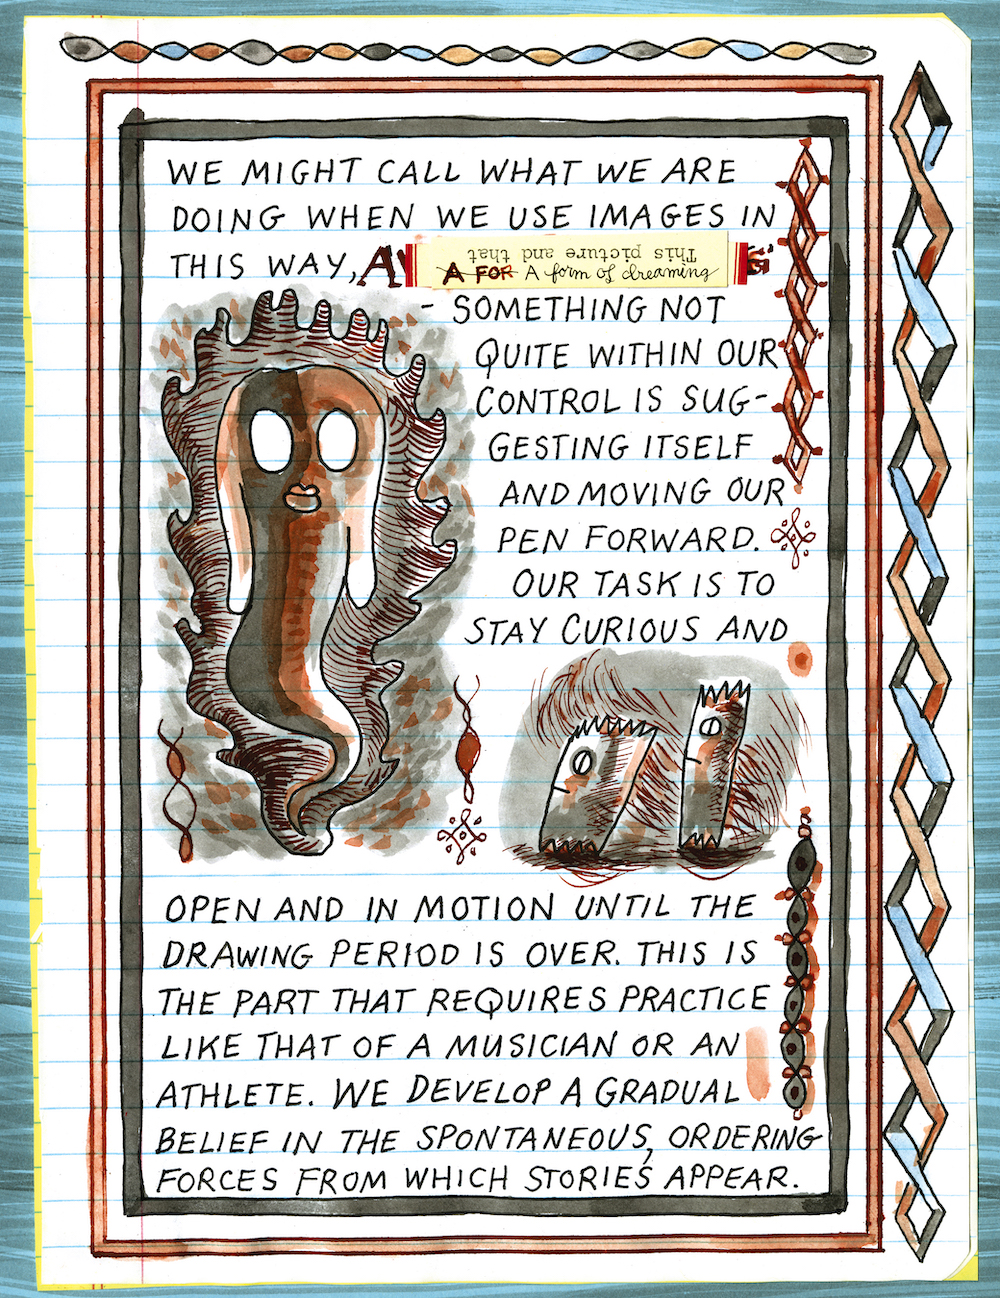 WE MIGHT CALL WHAT WE ARE
DOING WHEN WE USE IMAGES IN
THIS WAY,
This picture and that
A FOR A form of dreaming
- SOMETHING NOT
QUITE WITHIN OUR
CONTROL IS SUG-
GESTING ITSELF
AND MOVING OUR
PEN FORWARD.
OUR TASK IS TO
STAY CURIOUS AND
OPEN AND IN MOTION UNTIL THE
DRAWING PERIOD IS OVER. THIS IS
THE PART THAT REQUIRES PRACTICE
LIKE THAT OF A MUSICIAN OR AN
ATHLETE. WE DEVELOP A GRADUAL
BELIEF IN THE SPONTANEOUS, ORDERING
FORCES FROM WHICH STORIES APPEAR.